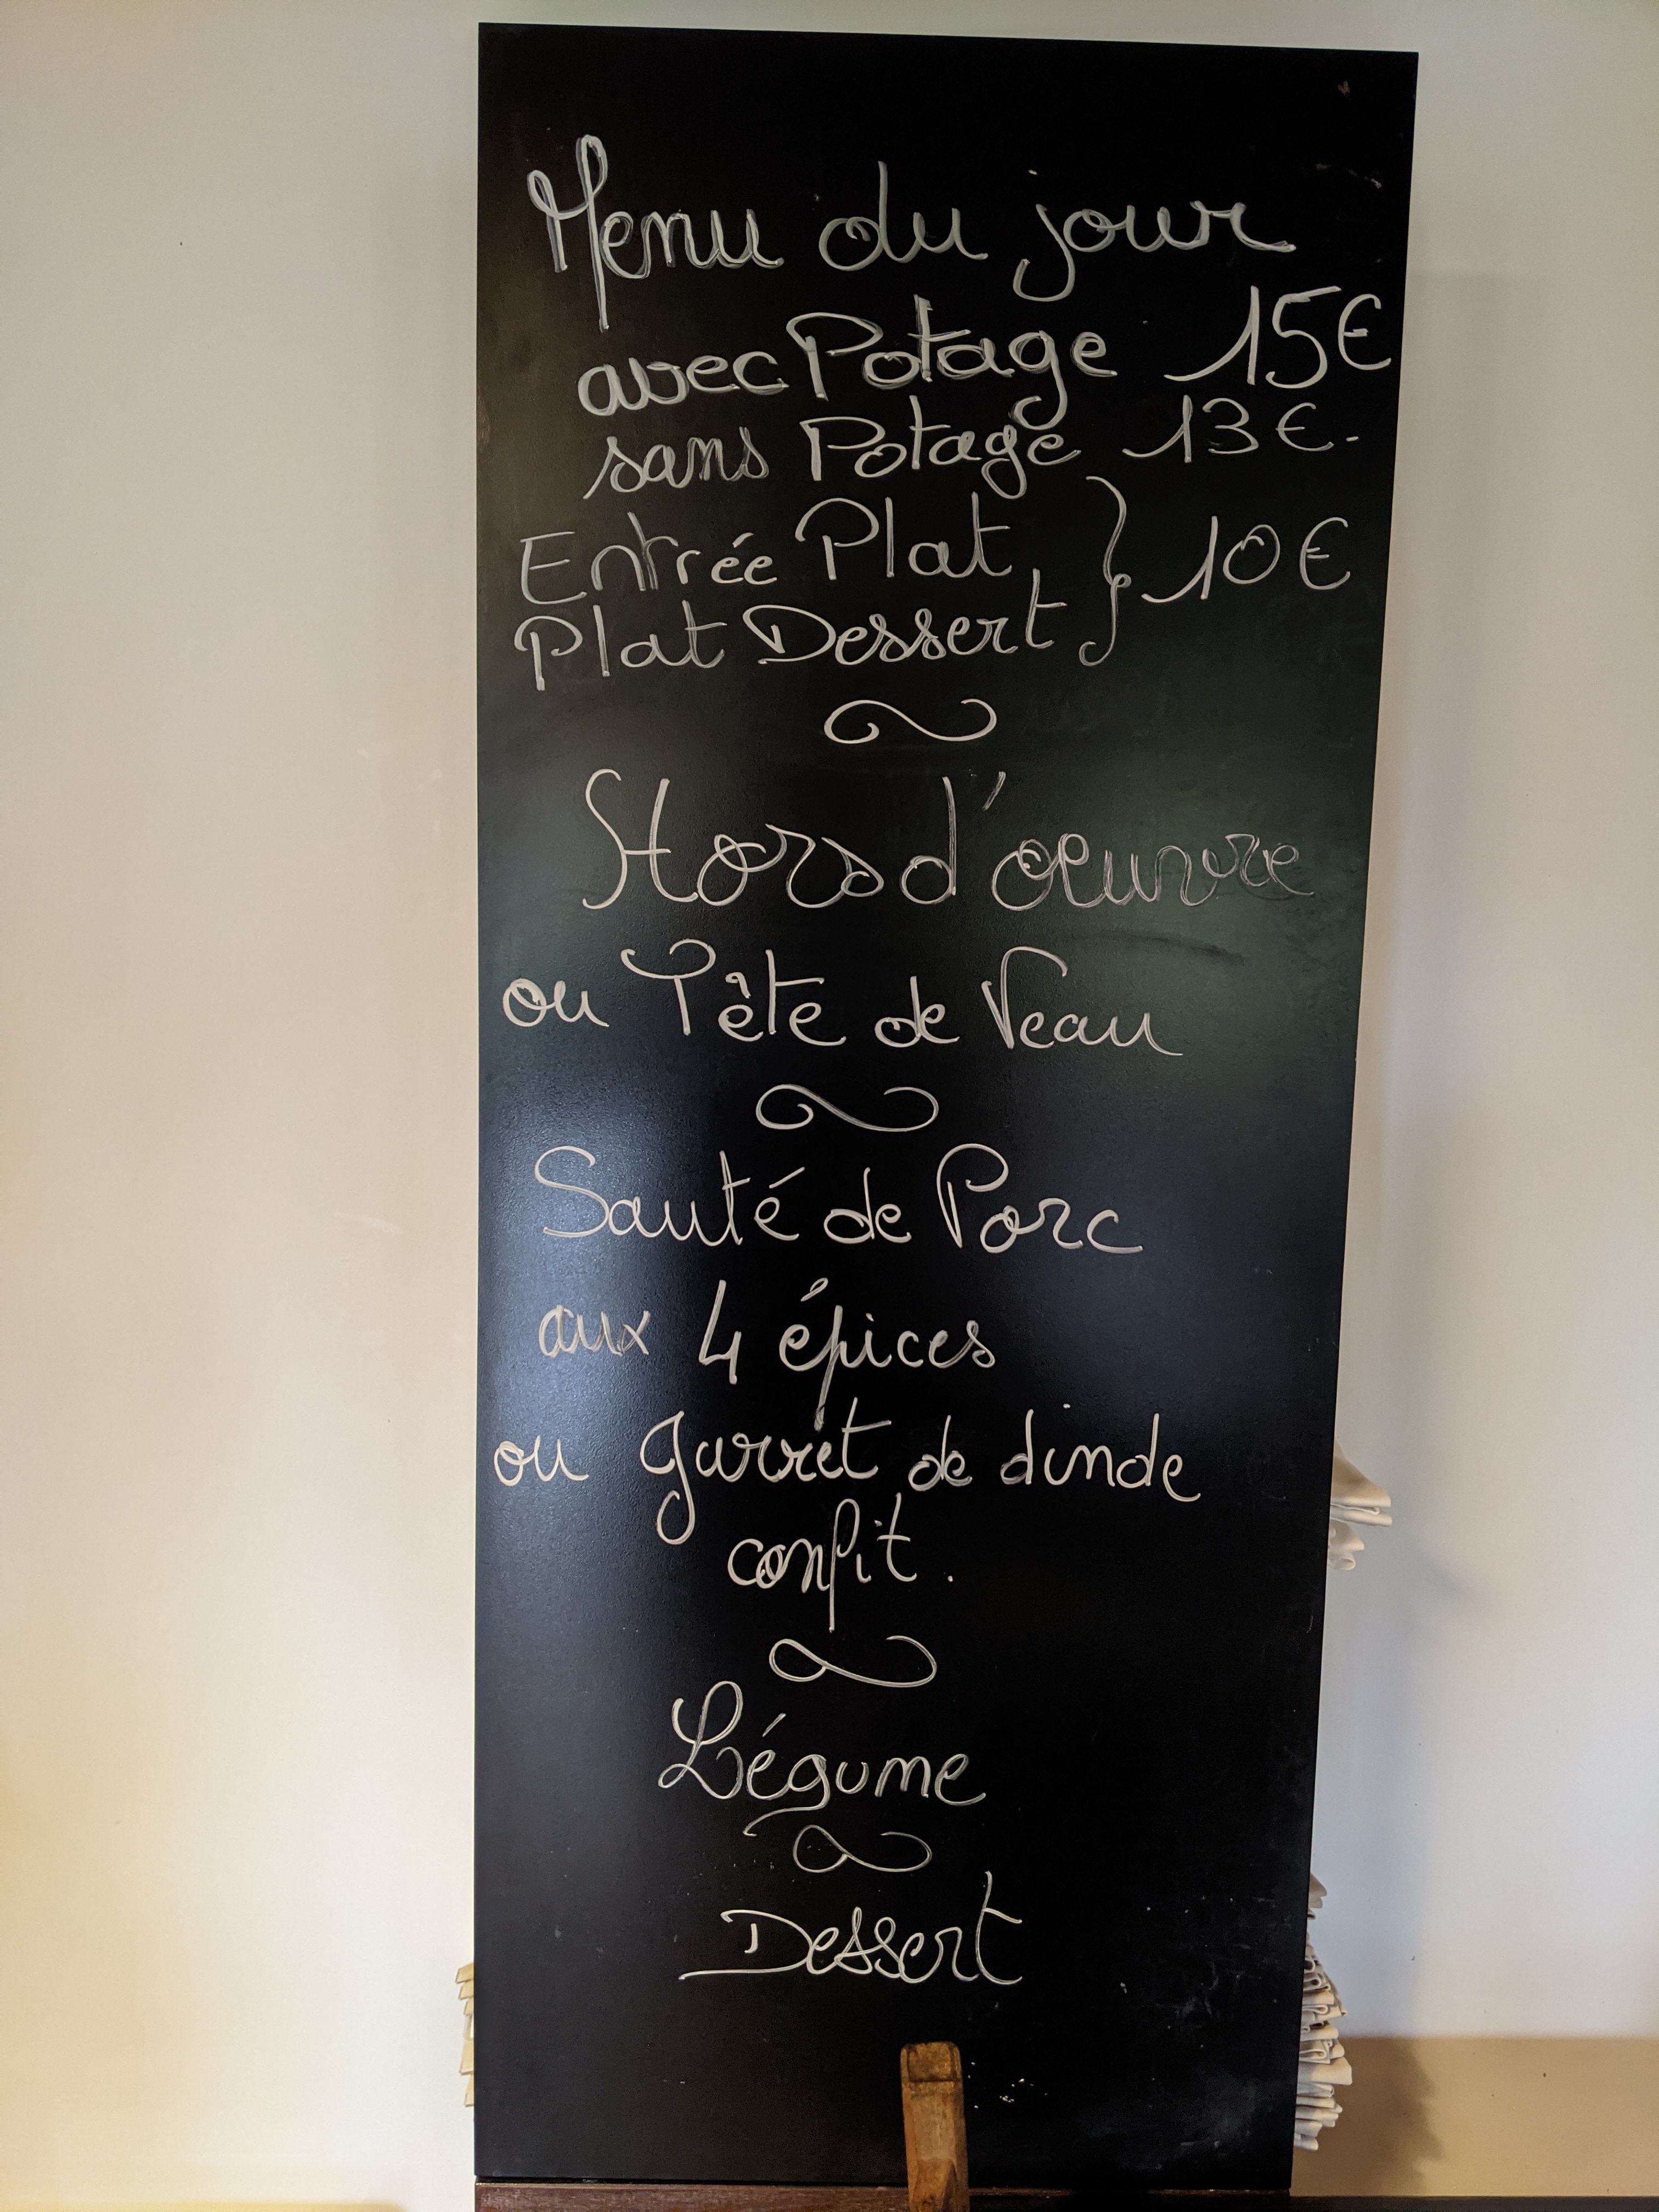 Menu du jour
avec Potage 15€
sans Potage 13€.
Entrée Plat } 10€
Plat Dessert
Hors d'oeuvre
ou Tête de Veau
Sauté de Porc
aux 4 épices
ou Jarret de dinde
confit.
Légume
Dessert